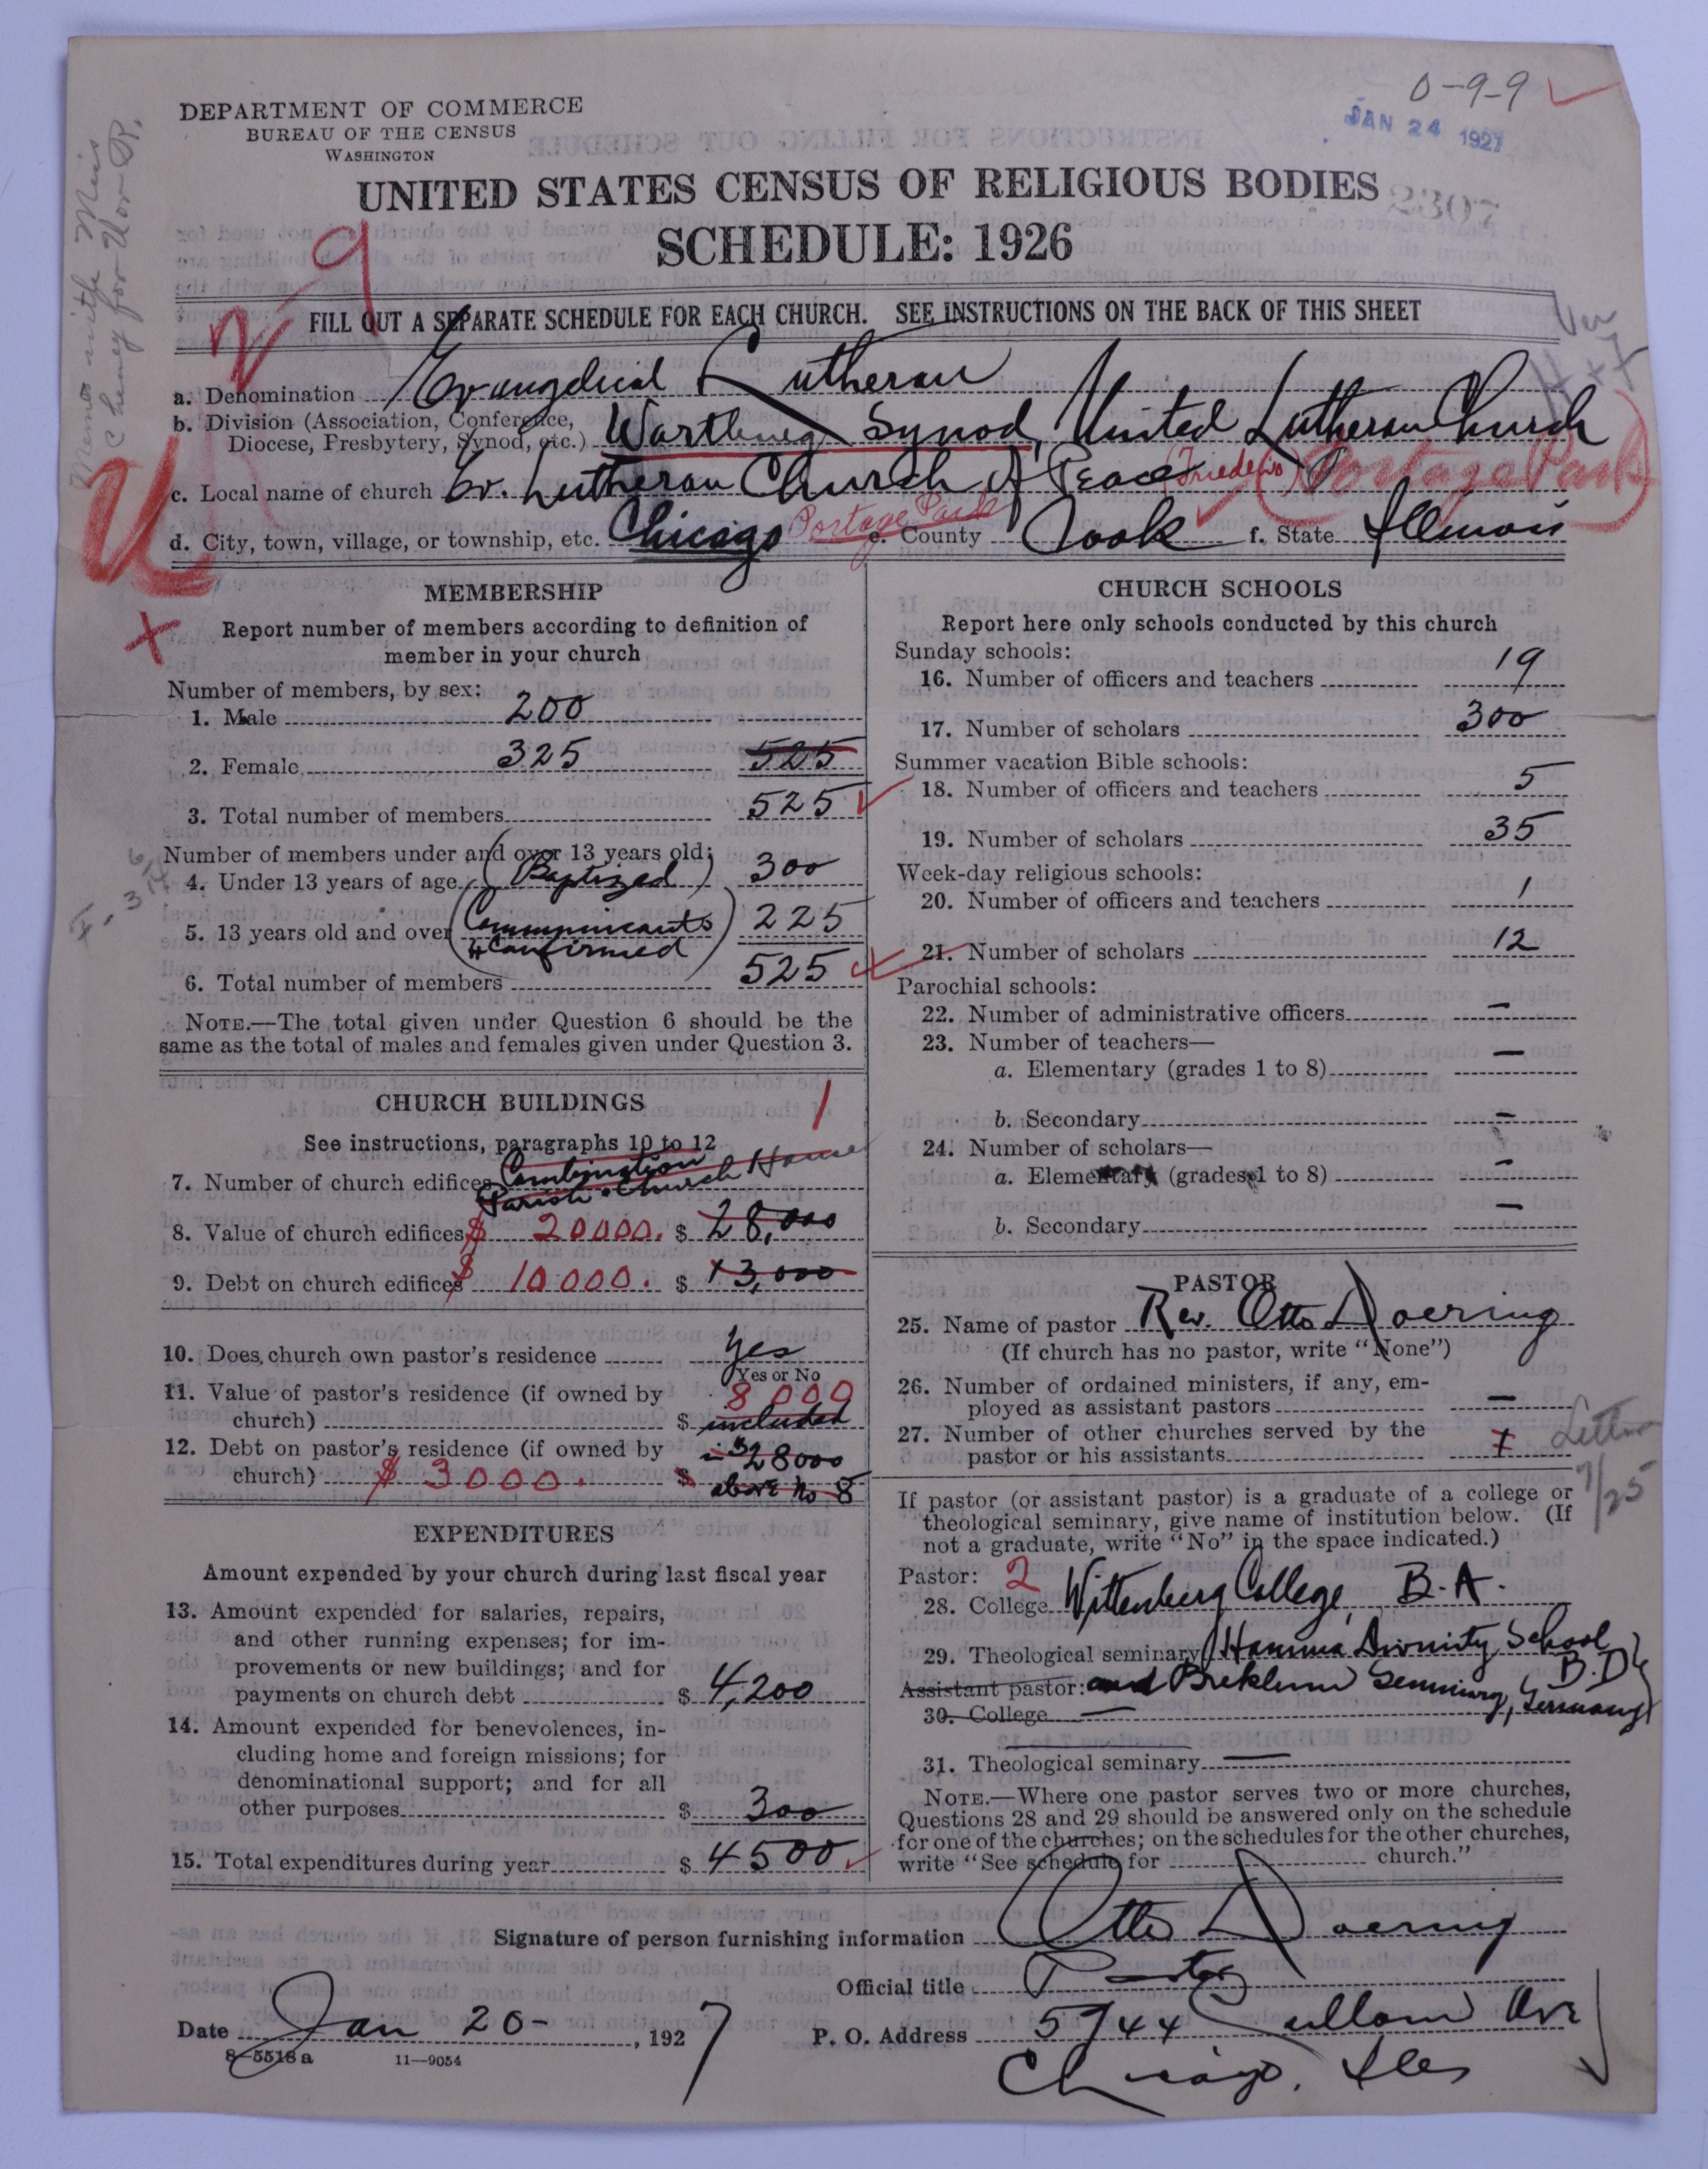 0-9-9
JAN 24 1927
DEPARTMENT OF COMMERCE
BUREAU OF THE CENSUS
WASHINGTON
UNITED STATES CENSUS OF RELIGIOUS BODIES
2307
SCHEDULE: 1926
FILL OUT A SEPARATE SCHEDULE FOR EACH CHURCH. SEE INSTRUCTIONS ON THE BACK OF THIS SHEET
a. Denomination Evangelical Lutheran
b. Division (Association, Conference,
Diocese, Presbytery, Synod, etc.) Wartburg Synod, United Lutheran Church
c. Local name of church Ev. Lutheran Church of Peace (Friedens) (Portage Park)
d. City, town, village, or township, etc. Chicago Portage Park e. County Cook f. State Illinois
MEMBERSHIP
Report number of members according to definition of
member in your church
Number of members, by sex:
1. Male 200
2. Female 325 525
3. Total number of members 525
Number of members under and over 13 years old:
4. Under 13 years of age (Baptized) 300
5. 13 years old and over (Communicants 225
+ Confirmed)
6. Total number of members 525
NOTE.—The total given under Question 6 should be the
same as the total of males and females given under Question 3.
CHURCH BUILDINGS 1
See instructions, paragraphs 10 to 12
7. Number of church edifices Combination
Parish + Church House
8. Value of church edifices $ 20000. $ 28,000
9. Debt on church edifices $ 10000. $ 13,000
10. Does church own pastor's residence Yes
Yes or No
11. Value of pastor's residence (if owned by 8000
church) $ included
12. Debt on pastor's residence (if owned by in $28000
church) $ 3000. $ above No 8
EXPENDITURES
Amount expended by your church during last fiscal year
13. Amount expended for salaries, repairs,
and other running expenses; for im-
provements or new buildings; and for
payments on church debt $ 4,200
14. Amount expended for benevolences, in-
cluding home and foreign missions; for
denominational support; and for all
other purposes $ 300
15. Total expenditures during year $ 4500
CHURCH SCHOOLS
Report here only schools conducted by this church
Sunday schools:
16. Number of officers and teachers 19
17. Number of scholars 300
Summer vacation Bible schools:
18. Number of officers and teachers 5
19. Number of scholars 35
Week-day religious schools:
20. Number of officers and teachers 1
21. Number of scholars 12
Parochial schools:
22. Number of administrative officers —
23. Number of teachers—
a. Elementary (grades 1 to 8) —
b. Secondary —
24. Number of scholars—
a. Elementary (grades 1 to 8) —
b. Secondary —
PASTOR
25. Name of pastor Rev. Otto Doering
(If church has no pastor, write "None")
26. Number of ordained ministers, if any, em-
ployed as assistant pastors —
27. Number of other churches served by the
pastor or his assistants Letter
7/25
If pastor (or assistant pastor) is a graduate of a college or
theological seminary, give name of institution below. (If
not a graduate, write "No" in the space indicated.)
Pastor: 2
28. College Wittenberg College, B.A.
29. Theological seminary (Hamma Divinity School B.D.
Assistant pastor: and Breklum Seminary, Germany)
30. College —
31. Theological seminary —
NOTE.—Where one pastor serves two or more churches,
Questions 28 and 29 should be answered only on the schedule
for one of the churches; on the schedules for the other churches,
write "See schedule for church."
Signature of person furnishing information Otto Doering
Official title Pastor
Date Jan 20-, 1927 P. O. Address 5744 Cullom Ave
8-5518a 11—9054 Chicago, Ills